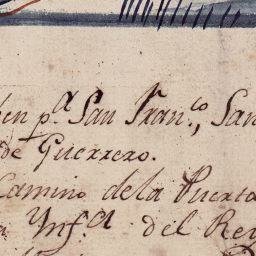 en p.ª San Fran.co, San
de Guerrero.
Camino de la Puerta
Ynf.ª del Rey